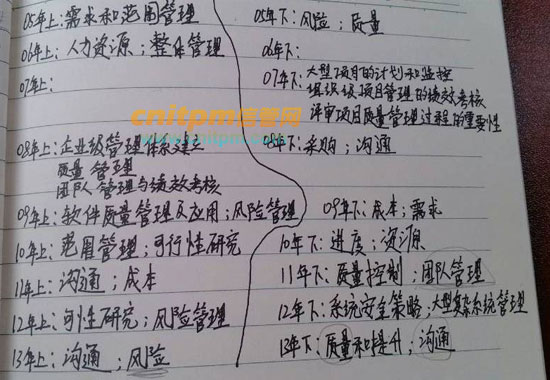 05年上:需求和范围管理
06年上:人力资源;整体管理
07年上:
08年上:企业级管理体系建立
质量管理
团队管理与绩效考核
09年上:软件质量管理及应用;风险管理
10年上:范围管理;可行性研究
11年上:沟通;成本
12年上:可性研究;风险管理
13年上:沟通;风险
05年下:风险;质量
06年下:
07年下:大型项目的计划和监控
组织级项目管理的绩效考核
评审项目质量管理过程的重要性
08年下:采购;沟通
09年下:成本;需求
10年下:进度;资源
11年下:质量控制;团队管理
12年下:系统安全策略;大型复杂系统管理
13年下:质量和提升;沟通
cnitpm信管网
www.cnitpm.com